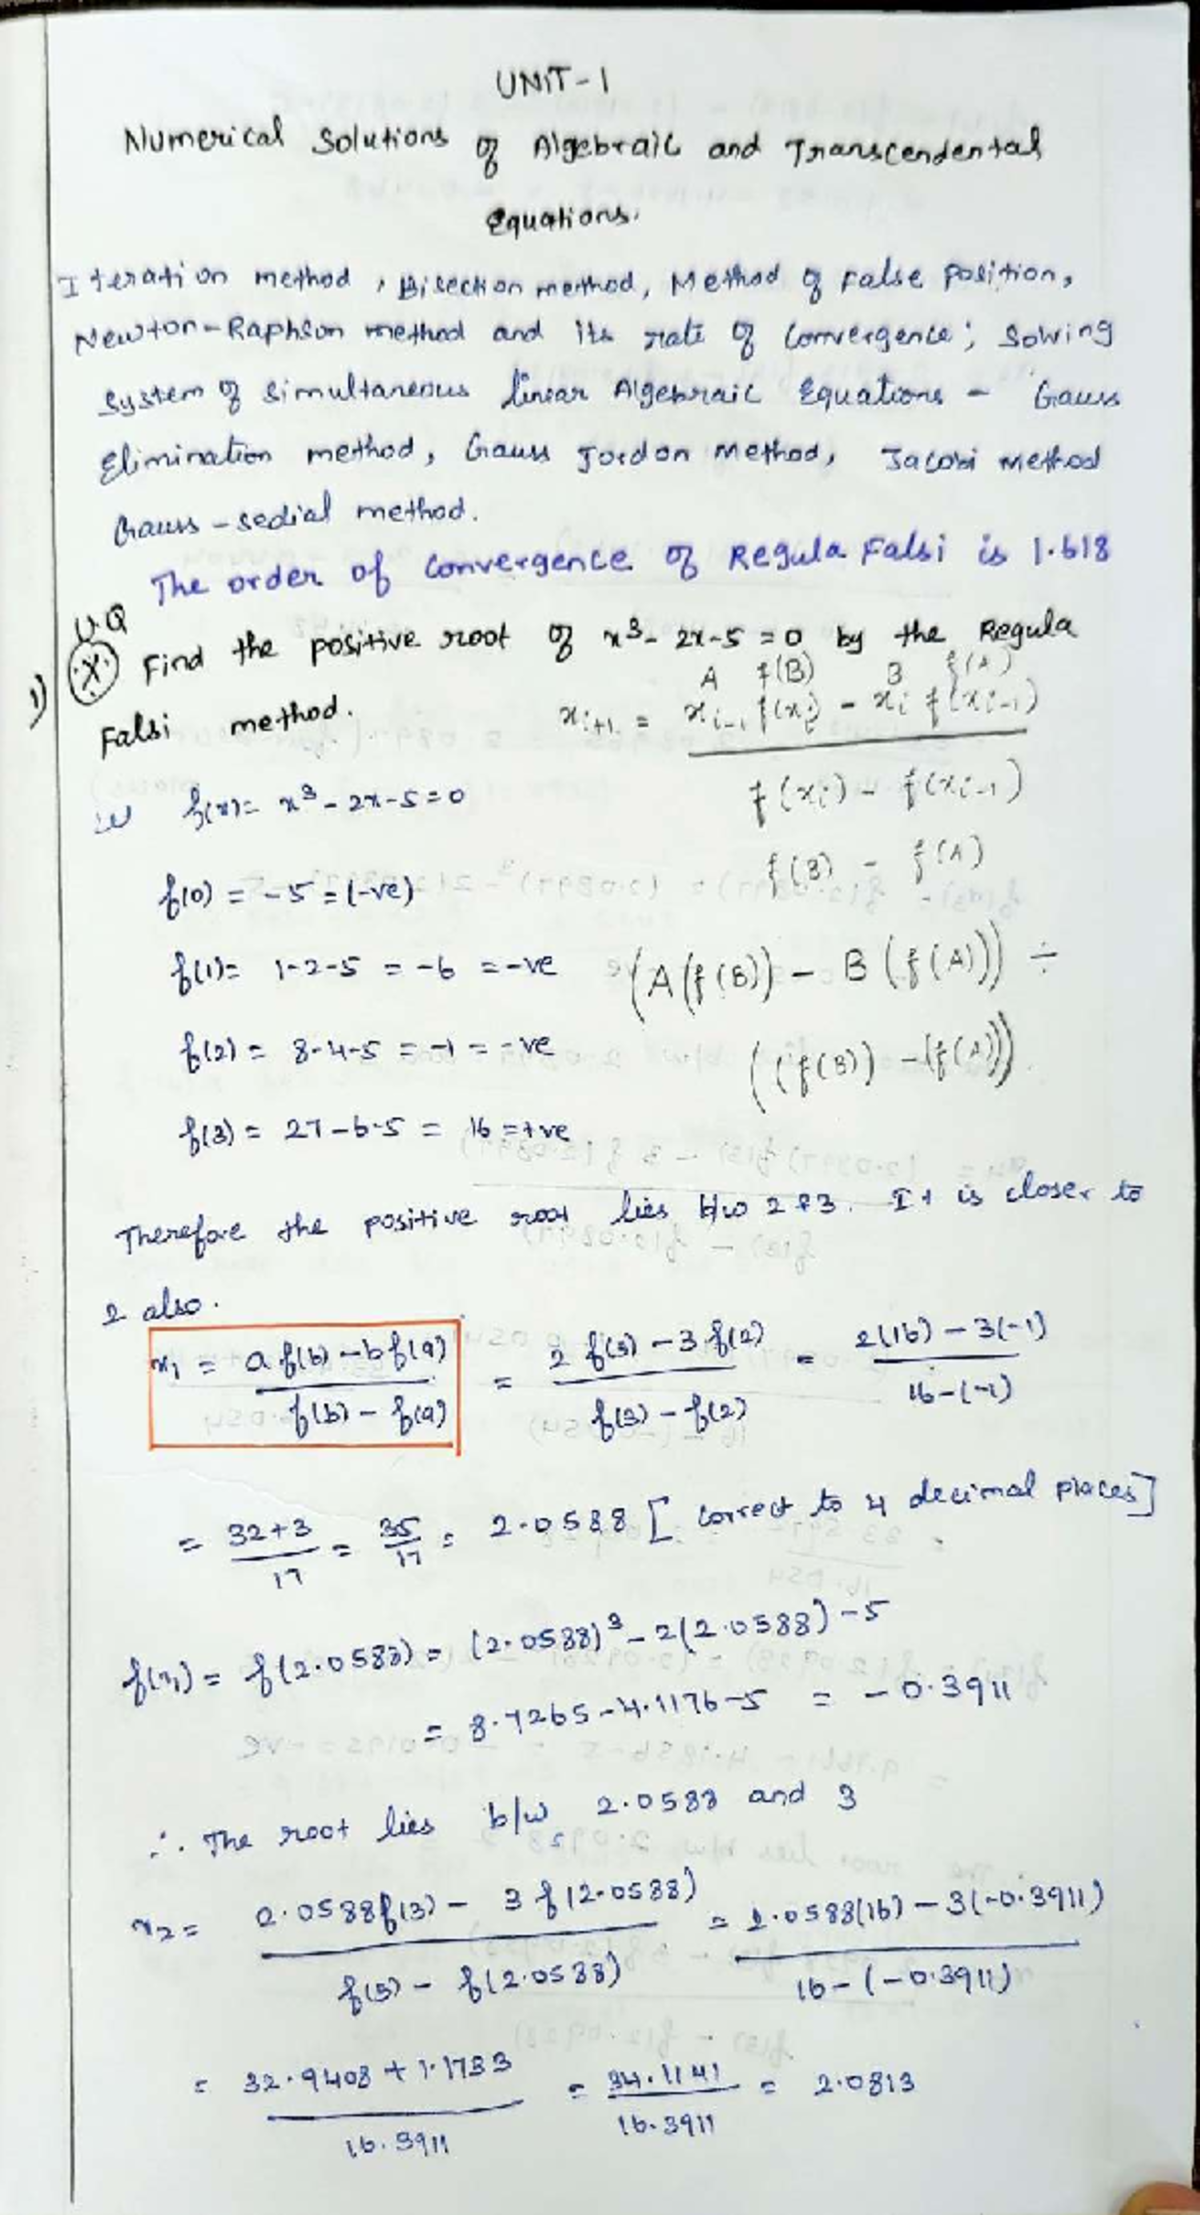 UNIT-1
Numerical Solutions of Algebraic and Transcendental
Equations.
Iteration method, Bisection method, Method of False Position,
Newton-Raphson method and its rate of convergence; Solving
System of Simultaneous linear Algebraic Equations - Gauss
Elimination method, Gauss Jordon Method, Jacobi Method
Gauss-sedial method.
The order of convergence of Regula Falsi is 1.618
U.Q
1) (X) Find the positive root of x³-2x-5=0 by the Regula
Falsi method.
A f(B) B f(A)
xi+1 = xi-1 f(xi) - xi f(xi-1)
f(xi) - f(xi-1)
f(x)= x³-2x-5=0
f(B) - f(A)
f(0) = -5 = (-ve)
f(1)= 1-2-5 = -6 = -ve
(A(f(B)) - B(f(A))) ÷
f(2) = 8-4-5 = -1 = -ve
((f(B)) -(f(A)))
f(3) = 27-6-5 = 16 = +ve
Therefore the positive root lies b/w 2 & 3. It is closer to
2 also.
x₁ = a f(b) - b f(a) / f(b) - f(a) = 2 f(3) - 3 f(2) / f(3) - f(2) = 2(16) - 3(-1) / 16-(-1)
= 32+3 / 17 = 35/17 = 2.0588 [correct to 4 decimal places]
f(x₁) = f(2.0588) = (2.0588)³ - 2(2.0588) - 5
= 8.7265-4.1176-5 = -0.3911
∴ The root lies b/w 2.0588 and 3
x₂ = 2.0588f(3) - 3 f(2.0588) / f(3) - f(2.0588) = 2.0588(16) - 3(-0.3911) / 16-(-0.3911)
= 32.9408 + 1.1733 / 16.3911 = 34.1141 / 16.3911 = 2.0813